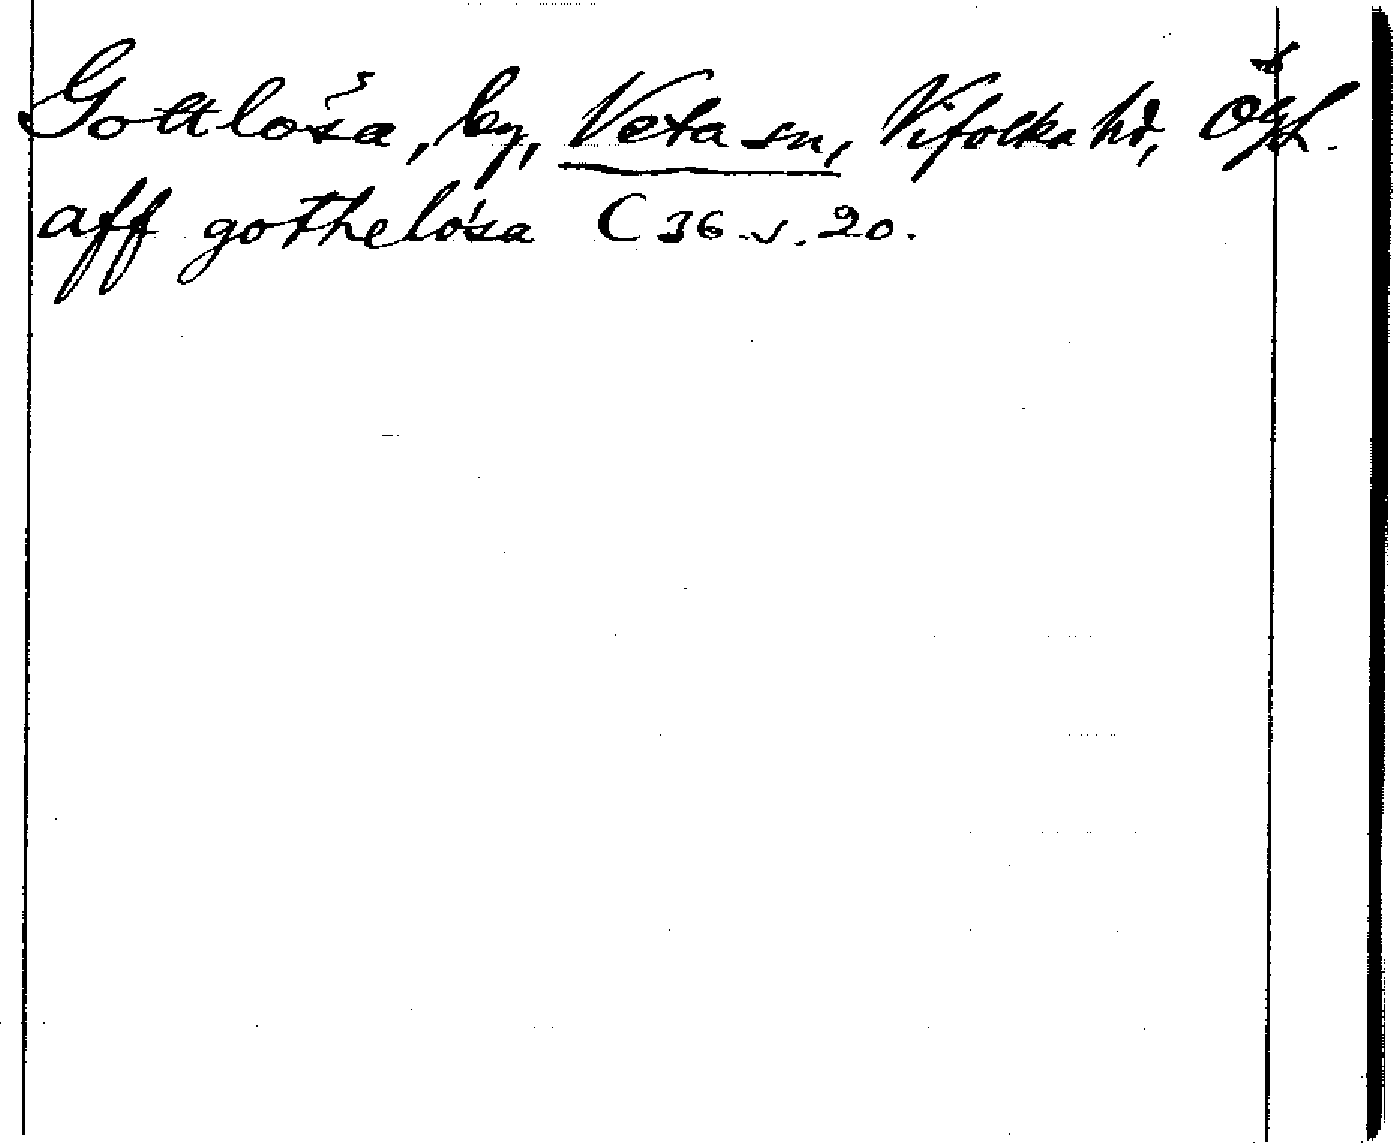 Gottlösa, by, Veta sn, Vifolka hd, Ögl.
aff gothelósa C 36 s. 20.